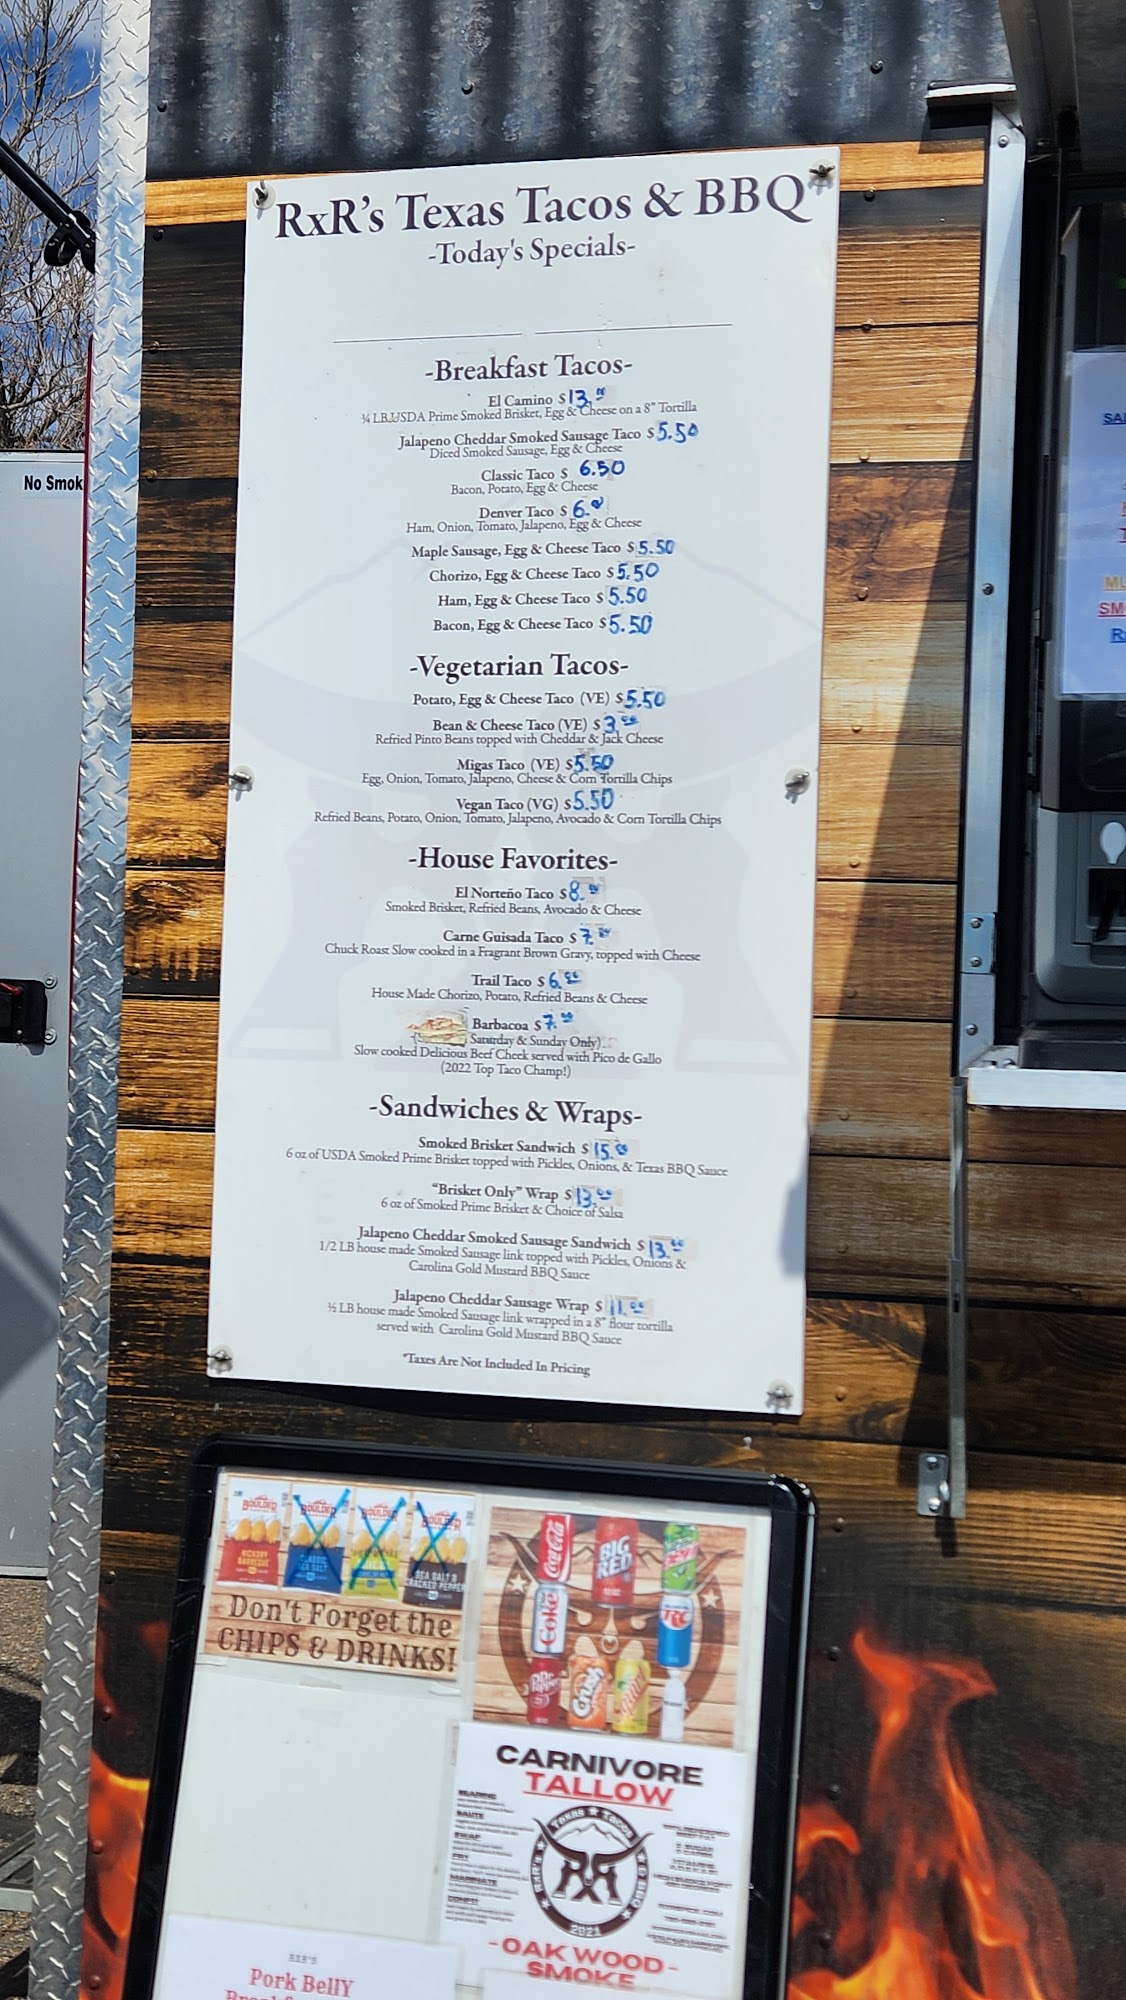 RxR's Texas Tacos & BBQ
-Today's Specials-
-Breakfast Tacos-
El Camino $13.00
¼ LB USDA Prime Smoked Brisket, Egg & Cheese on a 8" Tortilla
Jalapeno Cheddar Smoked Sausage Taco $5.50
Diced Smoked Sausage, Egg & Cheese
Classic Taco $ 6.50
Bacon, Potato, Egg & Cheese
Denver Taco $ 6.00
Ham, Onion, Tomato, Jalapeno, Egg & Cheese
Maple Sausage, Egg & Cheese Taco $5.50
Chorizo, Egg & Cheese Taco $5.50
Ham, Egg & Cheese Taco $5.50
Bacon, Egg & Cheese Taco $5.50
-Vegetarian Tacos-
Potato, Egg & Cheese Taco (VE) $5.50
Bean & Cheese Taco (VE) $3.00
Refried Pinto Beans topped with Cheddar & Jack Cheese
Migas Taco (VE) $5.50
Egg, Onion, Tomato, Jalapeno, Cheese & Corn Tortilla Chips
Vegan Taco (VG) $5.50
Refried Beans, Potato, Onion, Tomato, Jalapeno, Avocado & Corn Tortilla Chips
-House Favorites-
El Norteño Taco $8.00
Smoked Brisket, Refried Beans, Avocado & Cheese
Carne Guisada Taco $7.00
Chuck Roast Slow cooked in a Fragrant Brown Gravy, topped with Cheese
Trail Taco $6.00
House Made Chorizo, Potato, Refried Beans & Cheese
Barbacoa $7.50
(Saturday & Sunday Only)
Slow cooked Delicious Beef Cheek served with Pico de Gallo
(2022 Top Taco Champ!)
-Sandwiches & Wraps-
Smoked Brisket Sandwich $15.00
6 oz of USDA Smoked Prime Brisket topped with Pickles, Onions, & Texas BBQ Sauce
"Brisket Only" Wrap $13.00
6 oz of Smoked Prime Brisket & Choice of Salsa
Jalapeno Cheddar Smoked Sausage Sandwich $13.00
1/2 LB house made Smoked Sausage link topped with Pickles, Onions &
Carolina Gold Mustard BBQ Sauce
Jalapeno Cheddar Sausage Wrap $11.00
½ LB house made Smoked Sausage link wrapped in a 8" flour tortilla
served with Carolina Gold Mustard BBQ Sauce
*Taxes Are Not Included In Pricing
No Smok
BOULDER
HICKORY
BARBECUE
BOULDER
CLASSIC
SEA SALT
BOULDER
BOULDER
SEA SALT &
CRACKED PEPPER
Don't Forget the
CHIPS & DRINKS!
Coca-Cola
BIG
RED
Diet
Coke
RC
Dr Pepper
Crush
Squirt
CARNIVORE
TALLOW
SAUTE
FRY
MARINATE
TEXAS TACOS
& BBQ
RxR's
2021
-OAK WOOD-
SMOKE
RXR'S
Pork Belly
SM